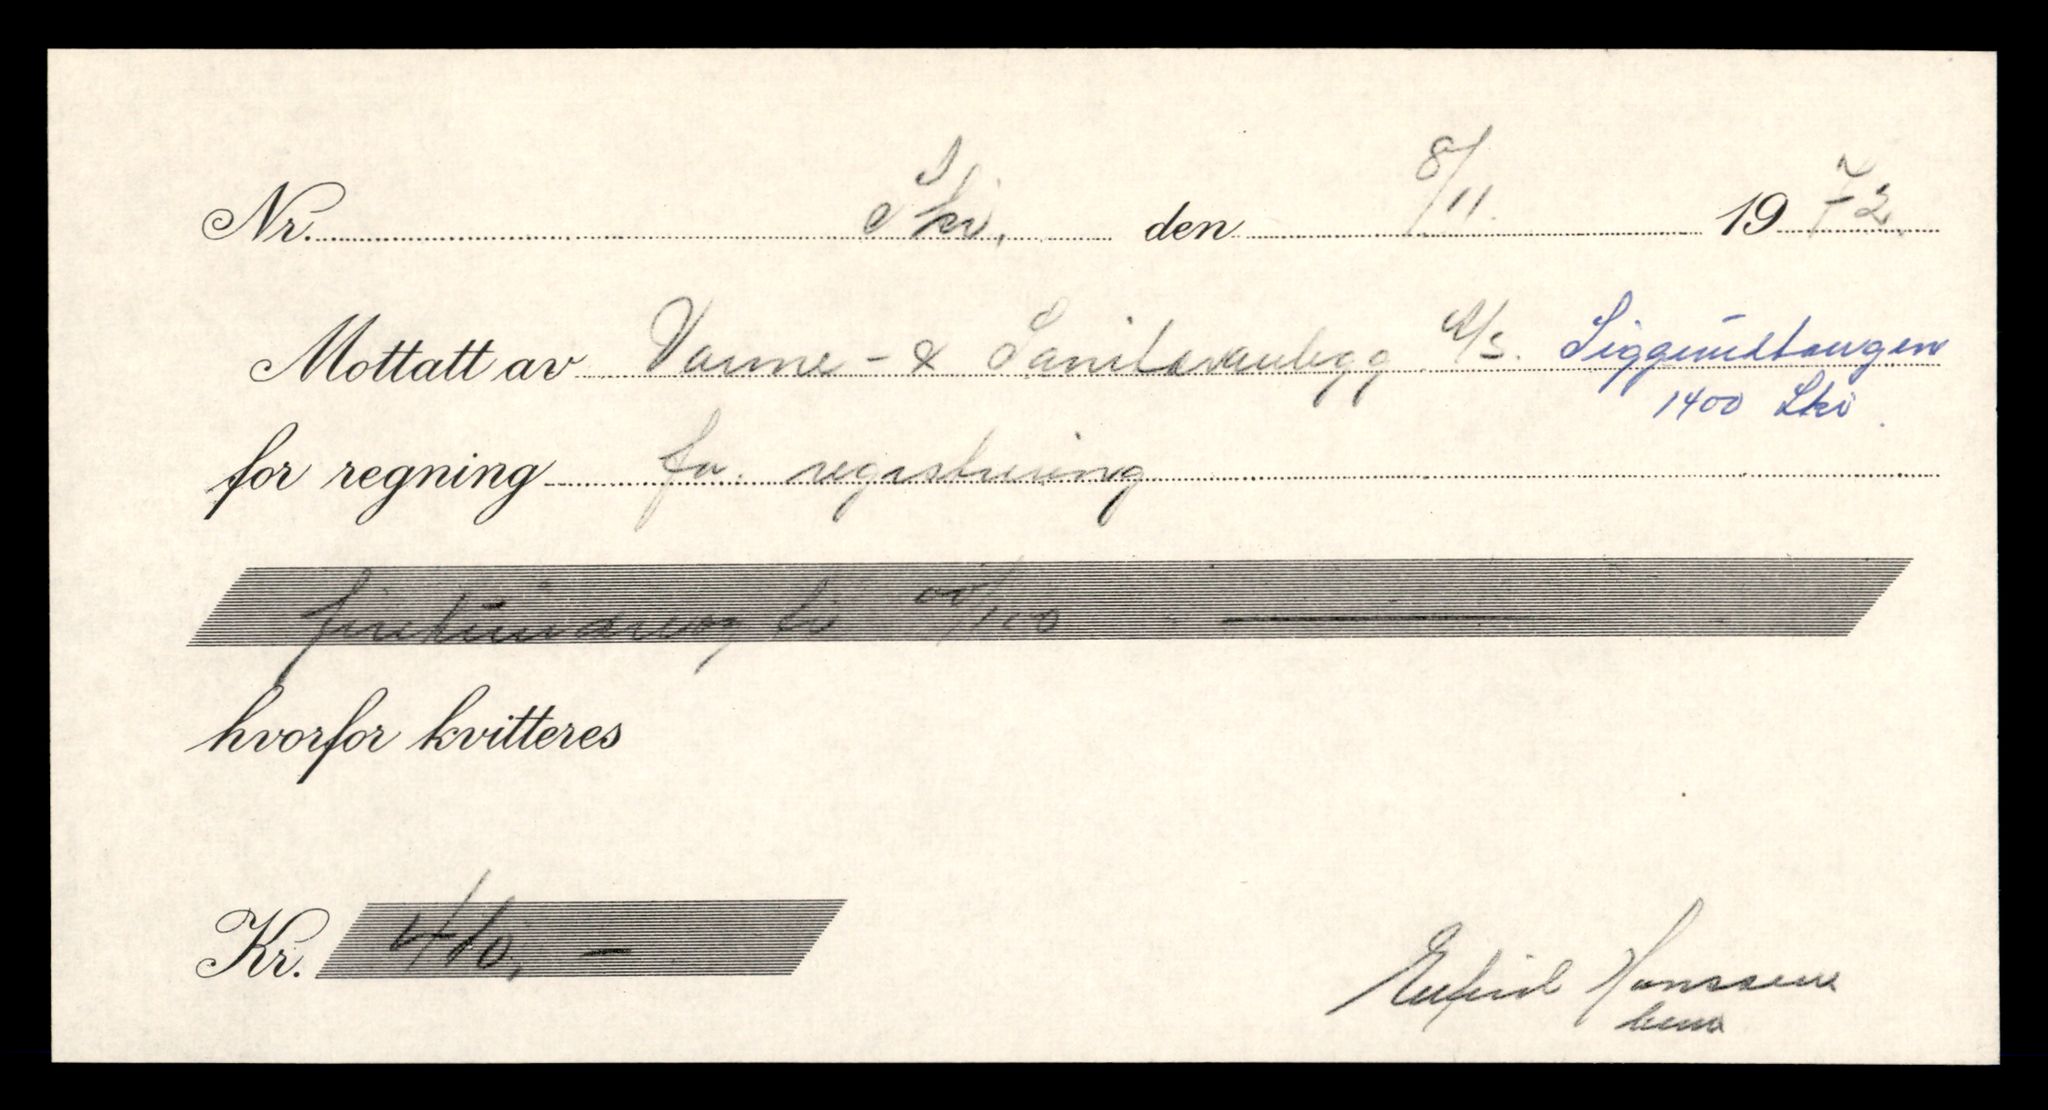 Nr. Ski, den 8/11. 1972.
Mottatt av Varme- & Sanitæranlegg A/S. Siggerudtangen
1400 Ski.
for regning fa. registrering
firehundreog ti 00/100
hvorfor kvitteres
Kr. 410,-
Hanssen